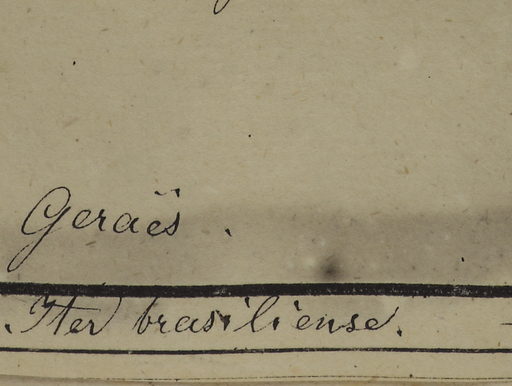 Geraës.
Iter brasiliense.